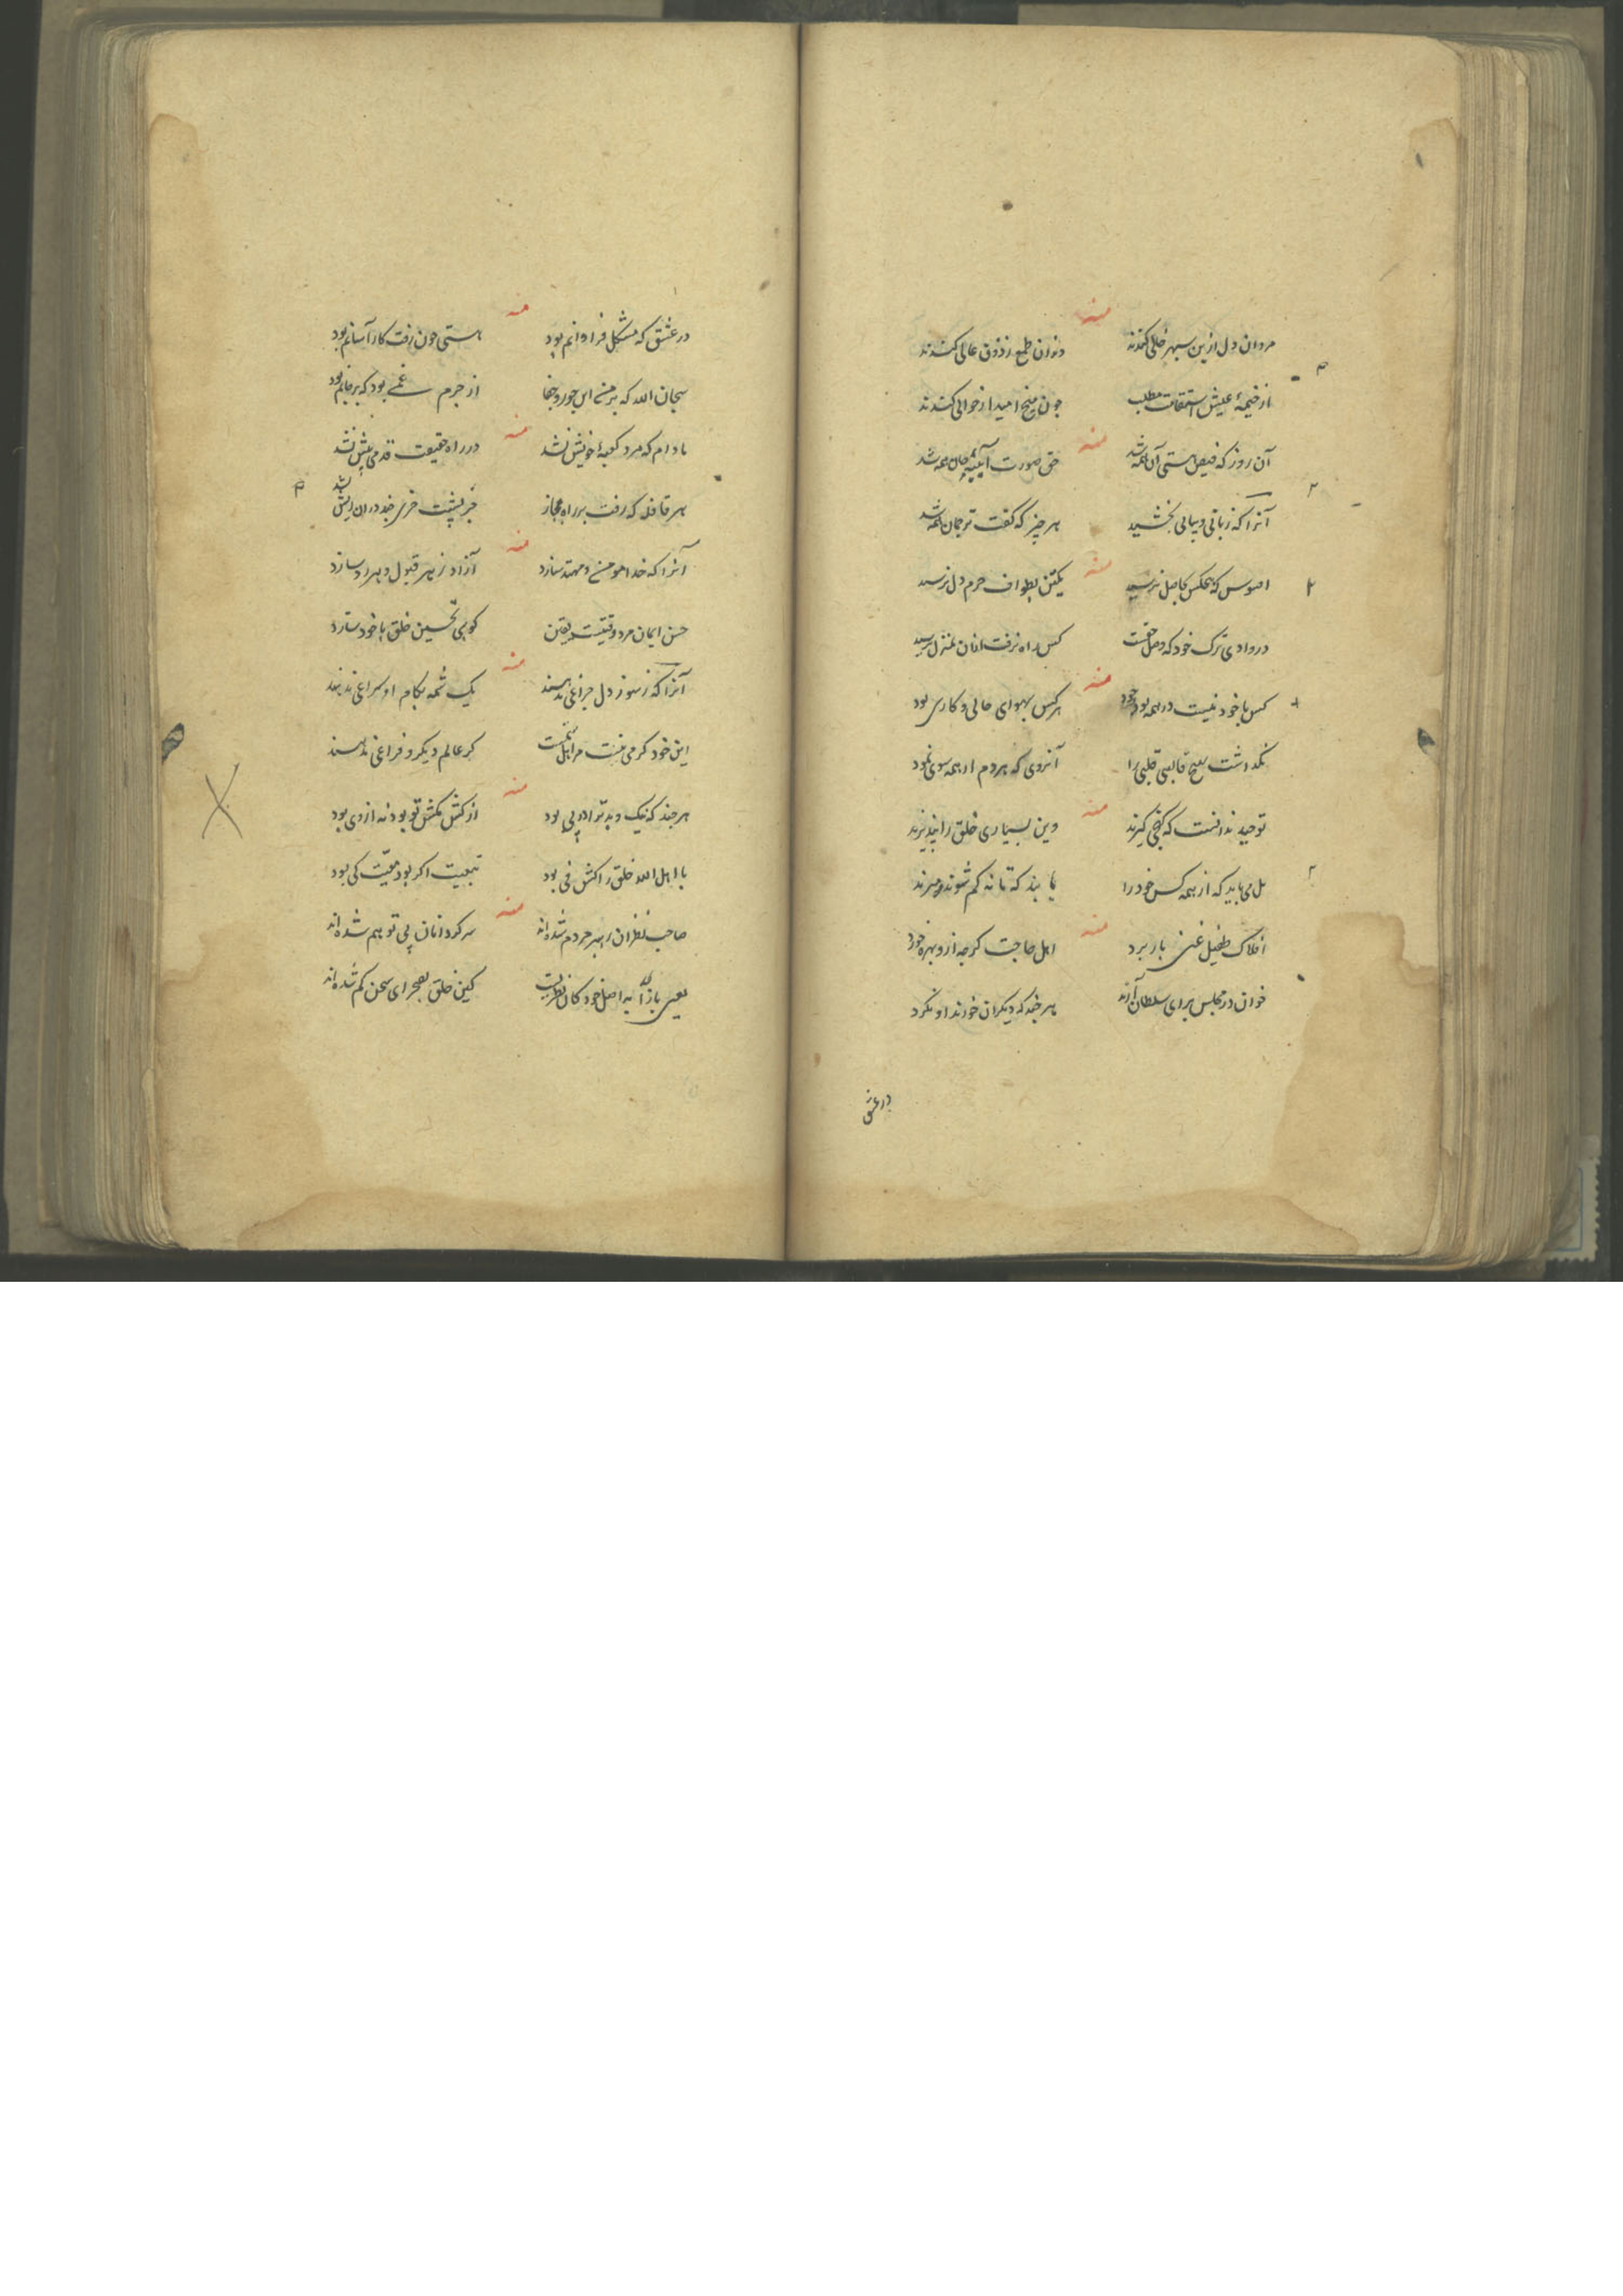 منه
مردان دل ازین سپهر خالی کندند
وزان طمع ز ذوق عالی کندند
از خیمهٔ عیش استقامت مطلب
چون میخ امید از حوالی کندند
منه
آن روز که فیض هستی آن همه شد
حق صورت آیینهٔ جان همه شد
آنرا که زبانی و بیانی بخشید
هر چیز که گفت ترجمان همه شد
منه
افسوس که هیچکس بحاصل نرسید
یکتن بطواف حرم دل نرسید
در وادی ترک خود که وصل حقست
کس راه نرفت اندران منزل نرسید
منه
کس با خود نیست در همه بود وجود
هر کس بهوای حالی و کاری بود
نگذاشت بهیچ قالبی قلبی را
آنروی که هر دم از همه سوی نمود
منه
توحید ندانست که کنجی گیرند
وین بسیاری خلق را نپذیرند
بل می باید که از همه کس خود را
یابند که تا نه کم شوند و میرند
منه
افلاک طفیل غنی بار برد
اهل حاجت گرچه ازو بهره خورد
خوان در مجلس برای سلطان آرند
هر چند که دیگران خورند او نخورد
در عشق
منه
در عشق که مشکل فراوانم بود
هستی چون رفت کار آسانم بود
سبحان الله که بر من این جور و جفا
از جرم غمی بود که بر جانم بود
منه
مادام که مرد کعبهٔ خویش نشد
در راه حقیقت قدمی پیش نشد
هر قافله که رفت بر راه مجاز
جز پشت خری چند در آن ریش نشد
منه
آنرا که خدا مومن و مهتد سازد
آزاد ز هر قبول و هر رد سازد
حسن ایمان مرد وقتیست یقین
کو بی تحسین خلق با خود سازد
منه
آنرا که ز سوز دل چراغی ندهند
یک شمه بکام او سراغی ندهند
این خود کرمی نیست مر اهل غمت
کز عالم دیگر و فراغی ندهند
منه
هر چند که نیک و بد ترا در پی بود
از کشش مکش تو بود نه از وی بود
با اهل الله خلق را کشش فی بود
تبعیت اگر بود معیت کی بود
منه
صاحب نظران رهبر مردم شده اند
سرگردانان پی توهم شده اند
یعنی بازآ به اصل خود کان نظریست
کین خلق بصحرای سخن گم شده اند